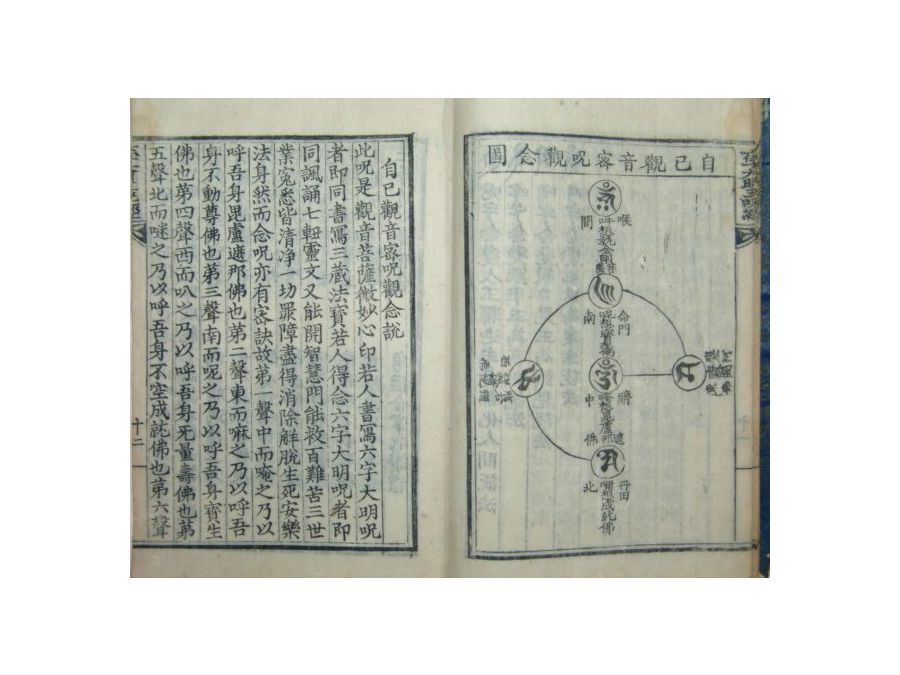 自已觀音密呪觀念圖
喉間
命門
南
臍
中
丹田
北
自已觀音密呪觀念說
此呪是觀音菩薩微妙心印若人書寫六字大明呪
者即同書寫三藏法寶若人得念六字大明呪者即
同諷誦七軸靈文又能開智慧門能救百難苦三世
業寃悉皆清净一切罪障盡得消除解脫生死安樂
法身然而念呪亦有密訣故第一聲中而唵之乃以
呼吾身毘盧遮那佛也第二聲東而嘛之乃以呼吾
身不動尊佛也第三聲南而呢之乃以呼吾身寶生
佛也第四聲西而叭之乃以呼吾身无量壽佛也第
五聲北而咪之乃以呼吾身不空成就佛也第六聲
十二